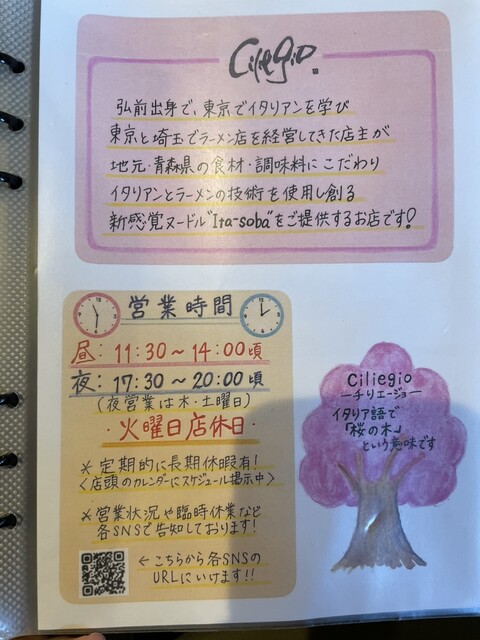 Ciliegio.
弘前出身で、東京でイタリアンを学び
東京と埼玉でラーメン店を経営してきた店主が
地元・青森県の食材・調味料にこだわり
イタリアンとラーメンの技術を使用し創る
新感覚ヌードル"Ita-soba"をご提供するお店です!
営業時間
昼：11:30～14:00頃
夜：17:30～20:00頃
(夜営業は木・土曜日)
・火曜日店休日・
※定期的に長期休暇有!
<店頭のカレンダーにスケジュール掲示中>
※営業状況や臨時休業など
各SNSで告知しております!
←こちらから各SNSの
URLにいけます!!
Ciliegio
ーチリエージョー
イタリア語で
「桜の木」
という意味です